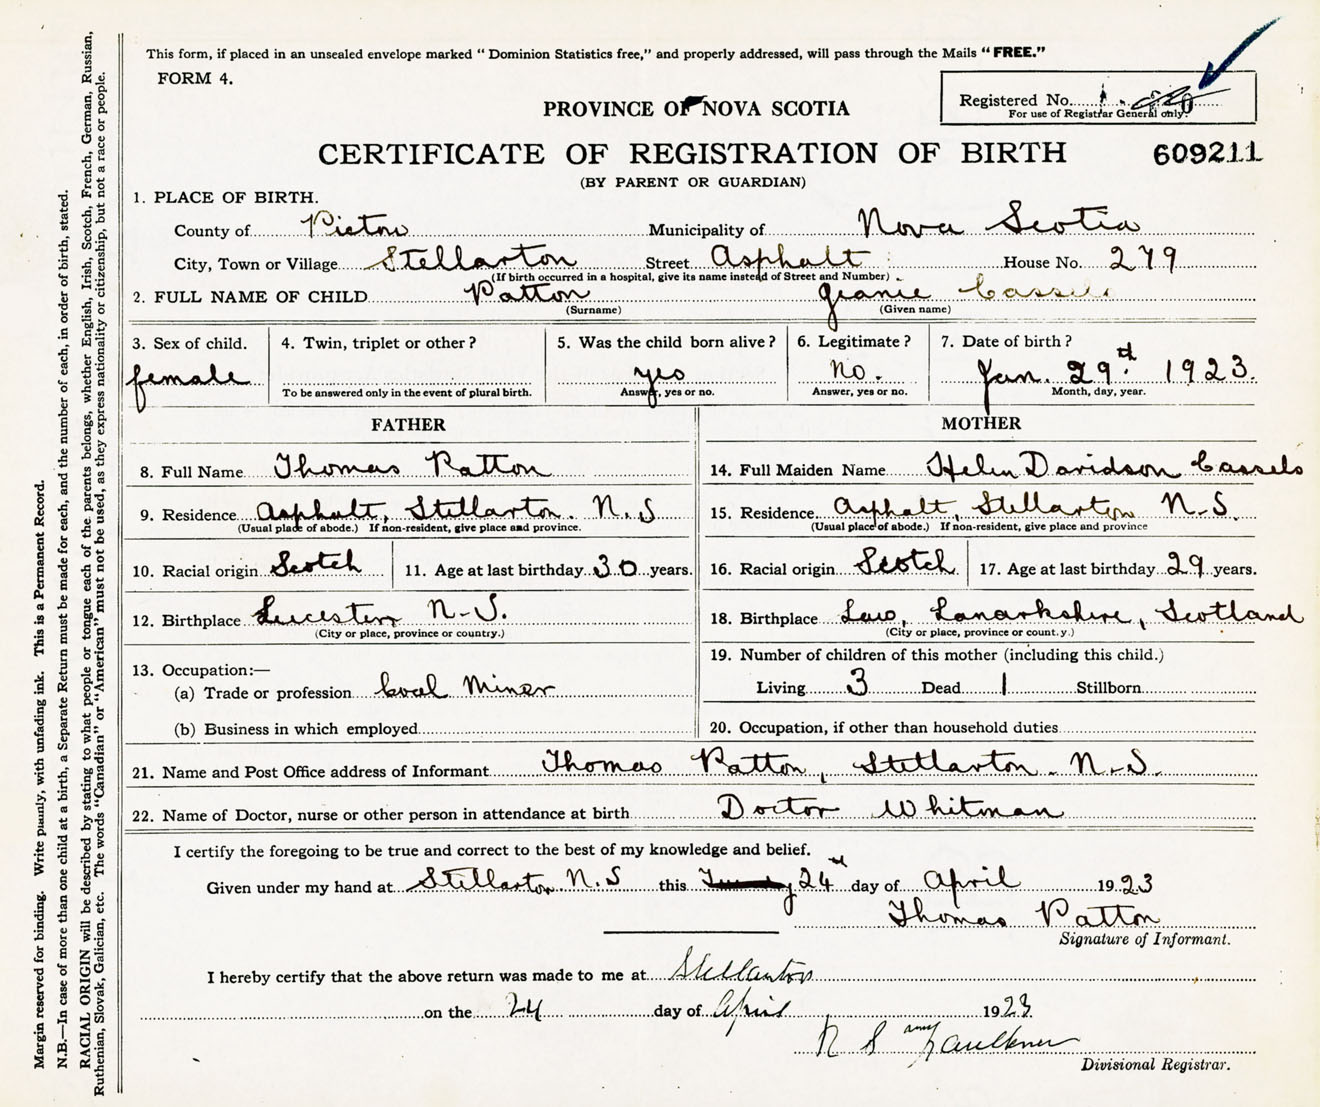 This form, if placed in an unsealed envelope marked “ Dominion Statistics free,” and properly addressed, will pass through the Mails “ FREE.”
FORM 4.
Registered No.
For use of Registrar General only.
PROVINCE OF NOVA SCOTIA
CERTIFICATE OF REGISTRATION OF BIRTH 609211
(BY PARENT OR GUARDIAN)
1. PLACE OF BIRTH.
County of Pictou Municipality of Nova Scotia
City, Town or Village Stellarton Street Asphalt House No. 279
(If birth occurred in a hospital, give its name instead of Street and Number)
2. FULL NAME OF CHILD Patton Jeanie Cassels
(Surname) (Given name)
3. Sex of child. 4. Twin, triplet or other ? 5. Was the child born alive ? 6. Legitimate ? 7. Date of birth ?
female yes no. Jan. 29th 1923.
To be answered only in the event of plural birth. Answer, yes or no. Answer, yes or no. Month, day, year.
FATHER MOTHER
8. Full Name Thomas Patton 14. Full Maiden Name Helen Davidson Cassels
9. Residence Asphalt, Stellarton. N.S 15. Residence Asphalt, Stellarton N-S.
(Usual place of abode.) If non-resident, give place and province. (Usual place of abode.) If non-resident, give place and province
10. Racial origin Scotch 11. Age at last birthday 30 years. 16. Racial origin Scotch 17. Age at last birthday 29 years.
12. Birthplace N-S. 18. Birthplace Law, Lanarkshire, Scotland
(City or place, province or country.) (City or place, province or count.y.)
13. Occupation:— 19. Number of children of this mother (including this child.)
(a) Trade or profession Coal Miner Living 3 Dead 1 Stillborn
(b) Business in which employed 20. Occupation, if other than household duties
21. Name and Post Office address of Informant Thomas Patton, Stellarton. N-S.
22. Name of Doctor, nurse or other person in attendance at birth Doctor Whitman
I certify the foregoing to be true and correct to the best of my knowledge and belief.
Given under my hand at Stellarton N.S this 24th day of April 1923
Thomas Patton
Signature of Informant.
I hereby certify that the above return was made to me at Stellarton
on the 24 day of April 1923
Faulkner
Divisional Registrar.
Margin reserved for binding. Write plainly, with unfading ink. This is a Permanent Record.
N.B.—In case of more than one child at a birth, a Separate Return must be made for each, and the number of each, in order of birth, stated.
RACIAL ORIGIN will be described by stating to what people or tongue each of the parents belongs, whether English, Irish, Scotch, French, German, Russian,
Ruthenian, Slovak, Galician, etc. The words “Canadian” or “American” must not be used, as they express nationality or citizenship, but not a race or people.